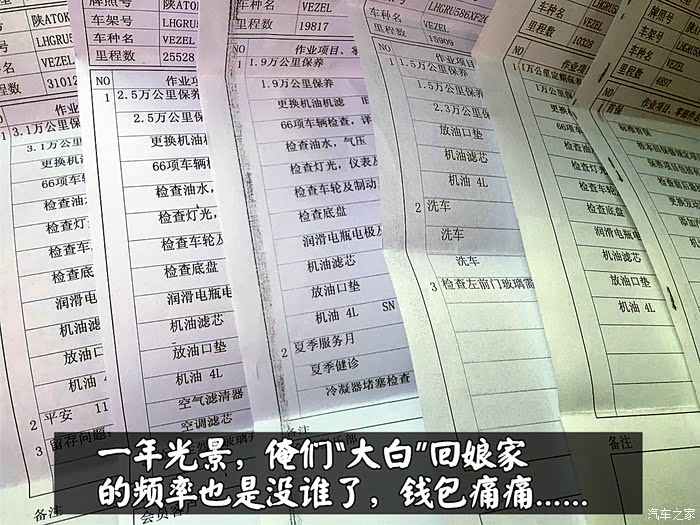 牌照号 陕AT0K
车架号 LHGRU
车种名 VEZEL
里程数 31012
NO 作业
1 3.1万公里保养
3.1万公里保
更换机油
66项车辆
检查油水
检查灯光
检查车轮
检查底
润滑电
机油滤
放油口
机油 4
2 平安 11
3 留存问题:
备注
陕AT0K
车架号 LHGRU
车种名 VEZEL
里程数 25528
NO 作业项
1 2.5万公里保养
2.5万公里保
更换机油
66项车辆检
检查油水,
检查灯光,
检查车轮及
检查底盘
润滑电瓶电
机油滤芯
放油口垫
机油 4L
空气滤清器
空调滤芯
备注
会员客户
车种名 VEZEL
里程数 19817
NO 作业项目、
1 1.9万公里保养
1.9万公里保养
更换机油机滤
66项车辆检查,详
检查油水,气压
检查灯光,仪表及
检查车轮及制动
检查底盘
润滑电瓶电极及
机油滤芯
放油口垫
机油 4L SN
2 夏季服务月
夏季健诊
冷凝器堵塞检查
备注
车架号 LHGRU586XF20
车种名 VEZEL
里程数 15909
NO 作业项
1 1.5万公里保养
1.5万公里保
2.3万公里
放油口垫
机油滤芯
机油 4L
2 洗车
洗车
洗车
3 检查左前门玻璃
车种名 VEZEL
里程数 10328
NO 作业项
1 1万公里定期保养
1万公里保
更换机
66项车
检查油
检查灯
检查车轮
检查底盘
润滑电瓶
机油滤芯
放油口垫
机油 4L
备注
牌照号
车架号 LHGRU
车种名 VEZEL
里程数 4897
NO 作业项目、零部件
1 首保
备注
一年光景,俺们“大白”回娘家
的频率也是没谁了,钱包痛痛……
汽车之家